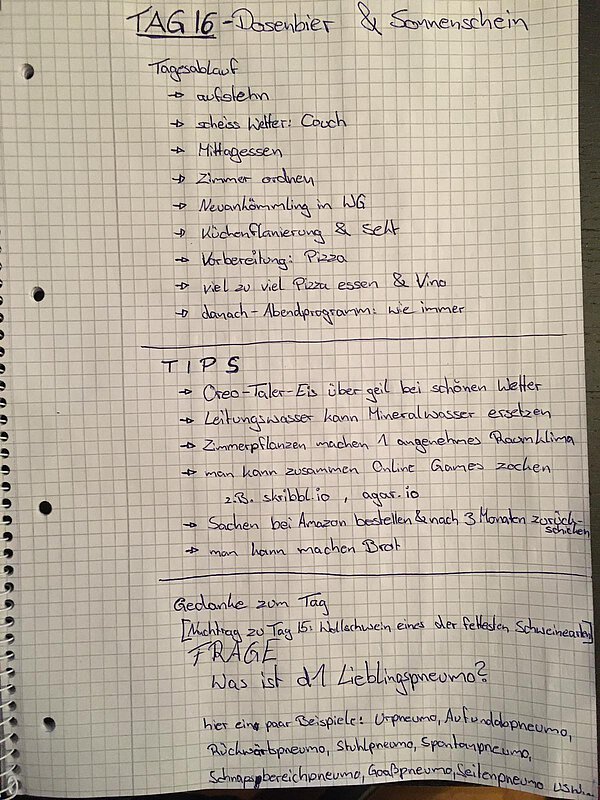 TAG 16 - Dosenbier & Sonnenschein
Tagesablauf
→ aufstehn
→ scheiss Wetter: Couch
→ Mittagessen
→ Zimmer ordnen
→ Neuankömmling in WG
→ Küchenflanierung & Sekt
→ Vorbereitung: Pizza
→ viel zu viel Pizza essen & Vino
→ danach - Abendprogramm: wie immer
TIPS
→ Oreo-Taler-Eis über geil bei schönen Wetter
→ Leitungswasser kann Mineralwasser ersetzen
→ Zimmerpflanzen machen 1 angenehmes Raumklima
→ man kann zusammen Online Games zocken
z.B. skribbl.io , agar.io
→ Sachen bei Amazon bestellen & nach 3 Monaten zurück-
schicken
→ man kann machen Brot
Gedanke zum Tag
[Nachtrag zu Tag 15: Wollschwein eines der fettesten Schweinearten]
FRAGE
Was ist d1 Lieblingspneumo?
hier ein paar Beispiele: Urpneumo, Aufundabpneumo,
Rückwärtspneumo, Stuhlpneumo, Spontanpneumo,
Schnapsbereichpneumo, Goaßpneumo, Seitenpneumo usw...